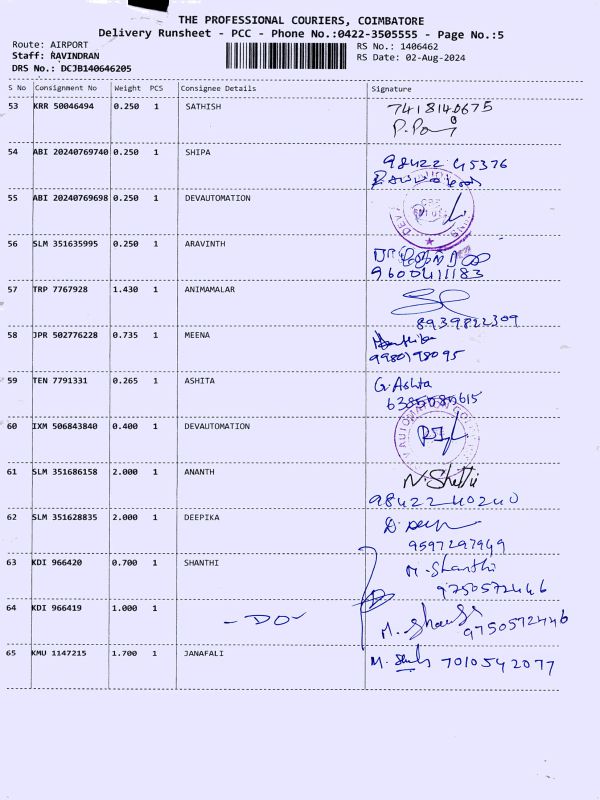 THE PROFESSIONAL COURIERS, COIMBATORE
Delivery Runsheet - PCC - Phone No.:0422-3505555 - Page No.:5
Route: AIRPORT
RS No.: 1406462
Staff: RAVINDRAN
RS Date: 02-Aug-2024
DRS No.: DCJB140646205
S No Consignment No Weight PCS Consignee Details Signature
53 KRR 50046494 0.250 1 SATHISH 7418140675
54 ABI 20240769740 0.250 1 SHIPA 98422 45376
55 ABI 20240769698 0.250 1 DEVAUTOMATION
56 SLM 351635995 0.250 1 ARAVINTH
9600411183
57 TRP 7767928 1.430 1 ANIMAMALAR
8939822309
58 JPR 502776228 0.735 1 MEENA
9980198095
59 TEN 7791331 0.265 1 ASHITA G. Ashta
60 IXM 506843840 0.400 1 DEVAUTOMATION
61 SLM 351686158 2.000 1 ANANTH
98422 40240
62 SLM 351628835 2.000 1 DEEPIKA
9597297949
63 KDI 966420 0.700 1 SHANTHI M. Shanthi
9750572446
64 KDI 966419 1.000 1 - DO -
9750572446
65 KMU 1147215 1.700 1 JANAFALI 7010542077